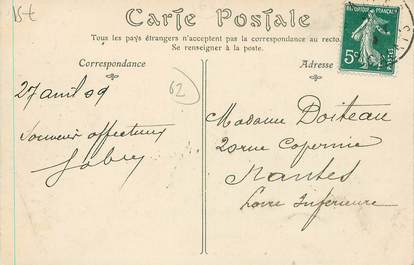 15€
Carte Postale
Tous les pays étrangers n'acceptent pas la correspondance au recto.
Se renseigner à la poste.
Correspondance
Adresse
5c
27 avril 09
62
Souvenir affectueux
Madame Doiteau
20 rue Copernic
Nantes
Loire Inférieure